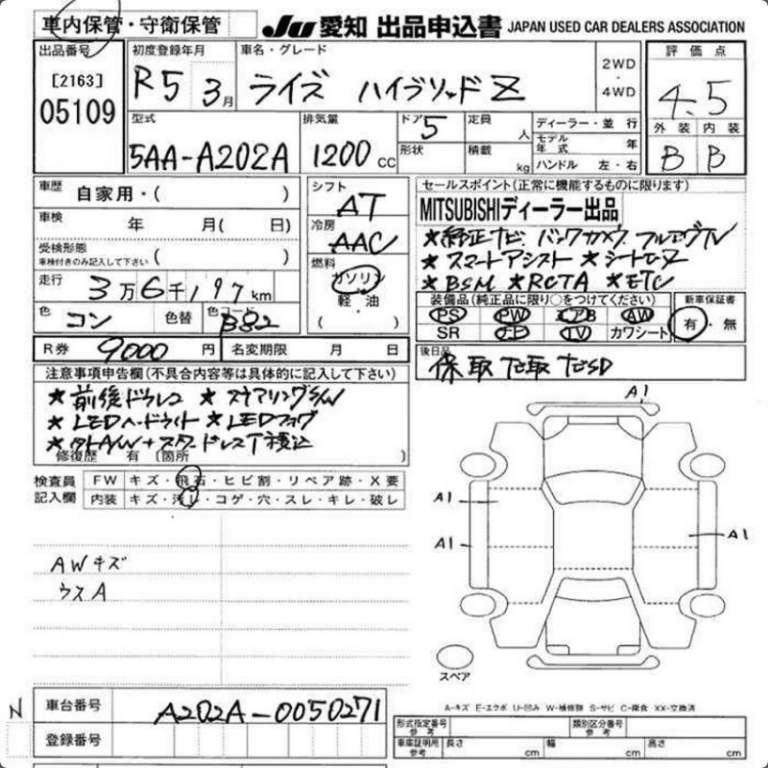 車内保管・守衛保管 JU 愛知 出品申込書 JAPAN USED CAR DEALERS ASSOCIATION
出品番号 初度登録年月 車名・グレード 2WD・4WD 評価点
[2163] 05109 R5 3月 ライズ ハイブリッドZ 4.5
型式 排気量 ドア 定員 ディーラー・並行 外装 内装
5AA-A202A 1200cc 5 人 モデル年式 年 B B
形状 積載 kg ハンドル 左・右
車歴 自家用・( ) シフト AT セールスポイント(正常に機能するものに限ります)
車検 年 月( 日) 冷房 AAC MITSUBISHIディーラー出品
受検形態 車検付きのみ記入して下さい ( ) 燃料 ガソリン 軽・油 ( )
★純正ナビ バックカメラ フルセグTV
★スマートアシスト ★シートヒーター
★BSM ★RCTA ★ETC
走行 3万6千197km
装備品(純正品に限り○をつけてください) 新車保証書
PS PW エアB AW 有・無
SR ナビ TV カワシート
色 コン 色替 色コード B82
R券 9000円 名変期限 月 日
後日品 保 取 ナビ取 ナビSD
注意事項申告欄(不具合内容等は具体的に記入して下さい)
★前後ドラレコ ★ステアリングS/W
★LEDヘッドライト ★LEDフォグ
修復歴 有 [箇所 ]
検査員記入欄 FW キズ・飛石・ヒビ割・リペア跡・X要
内装 キズ・汚レ・コゲ・穴・スレ・キレ・破レ
AWキズ
ウスA
A1
A1
A1
A1
スペア
A-キズ E-エクボ U-凹み W-補修跡 S-サビ C-腐食 XX-交換済
N 車台番号 A202A-0050271
登録番号
形式指定番号 参考 類別区分番号 参考
車庫証明用 参考 長さ cm 幅 cm 高さ cm